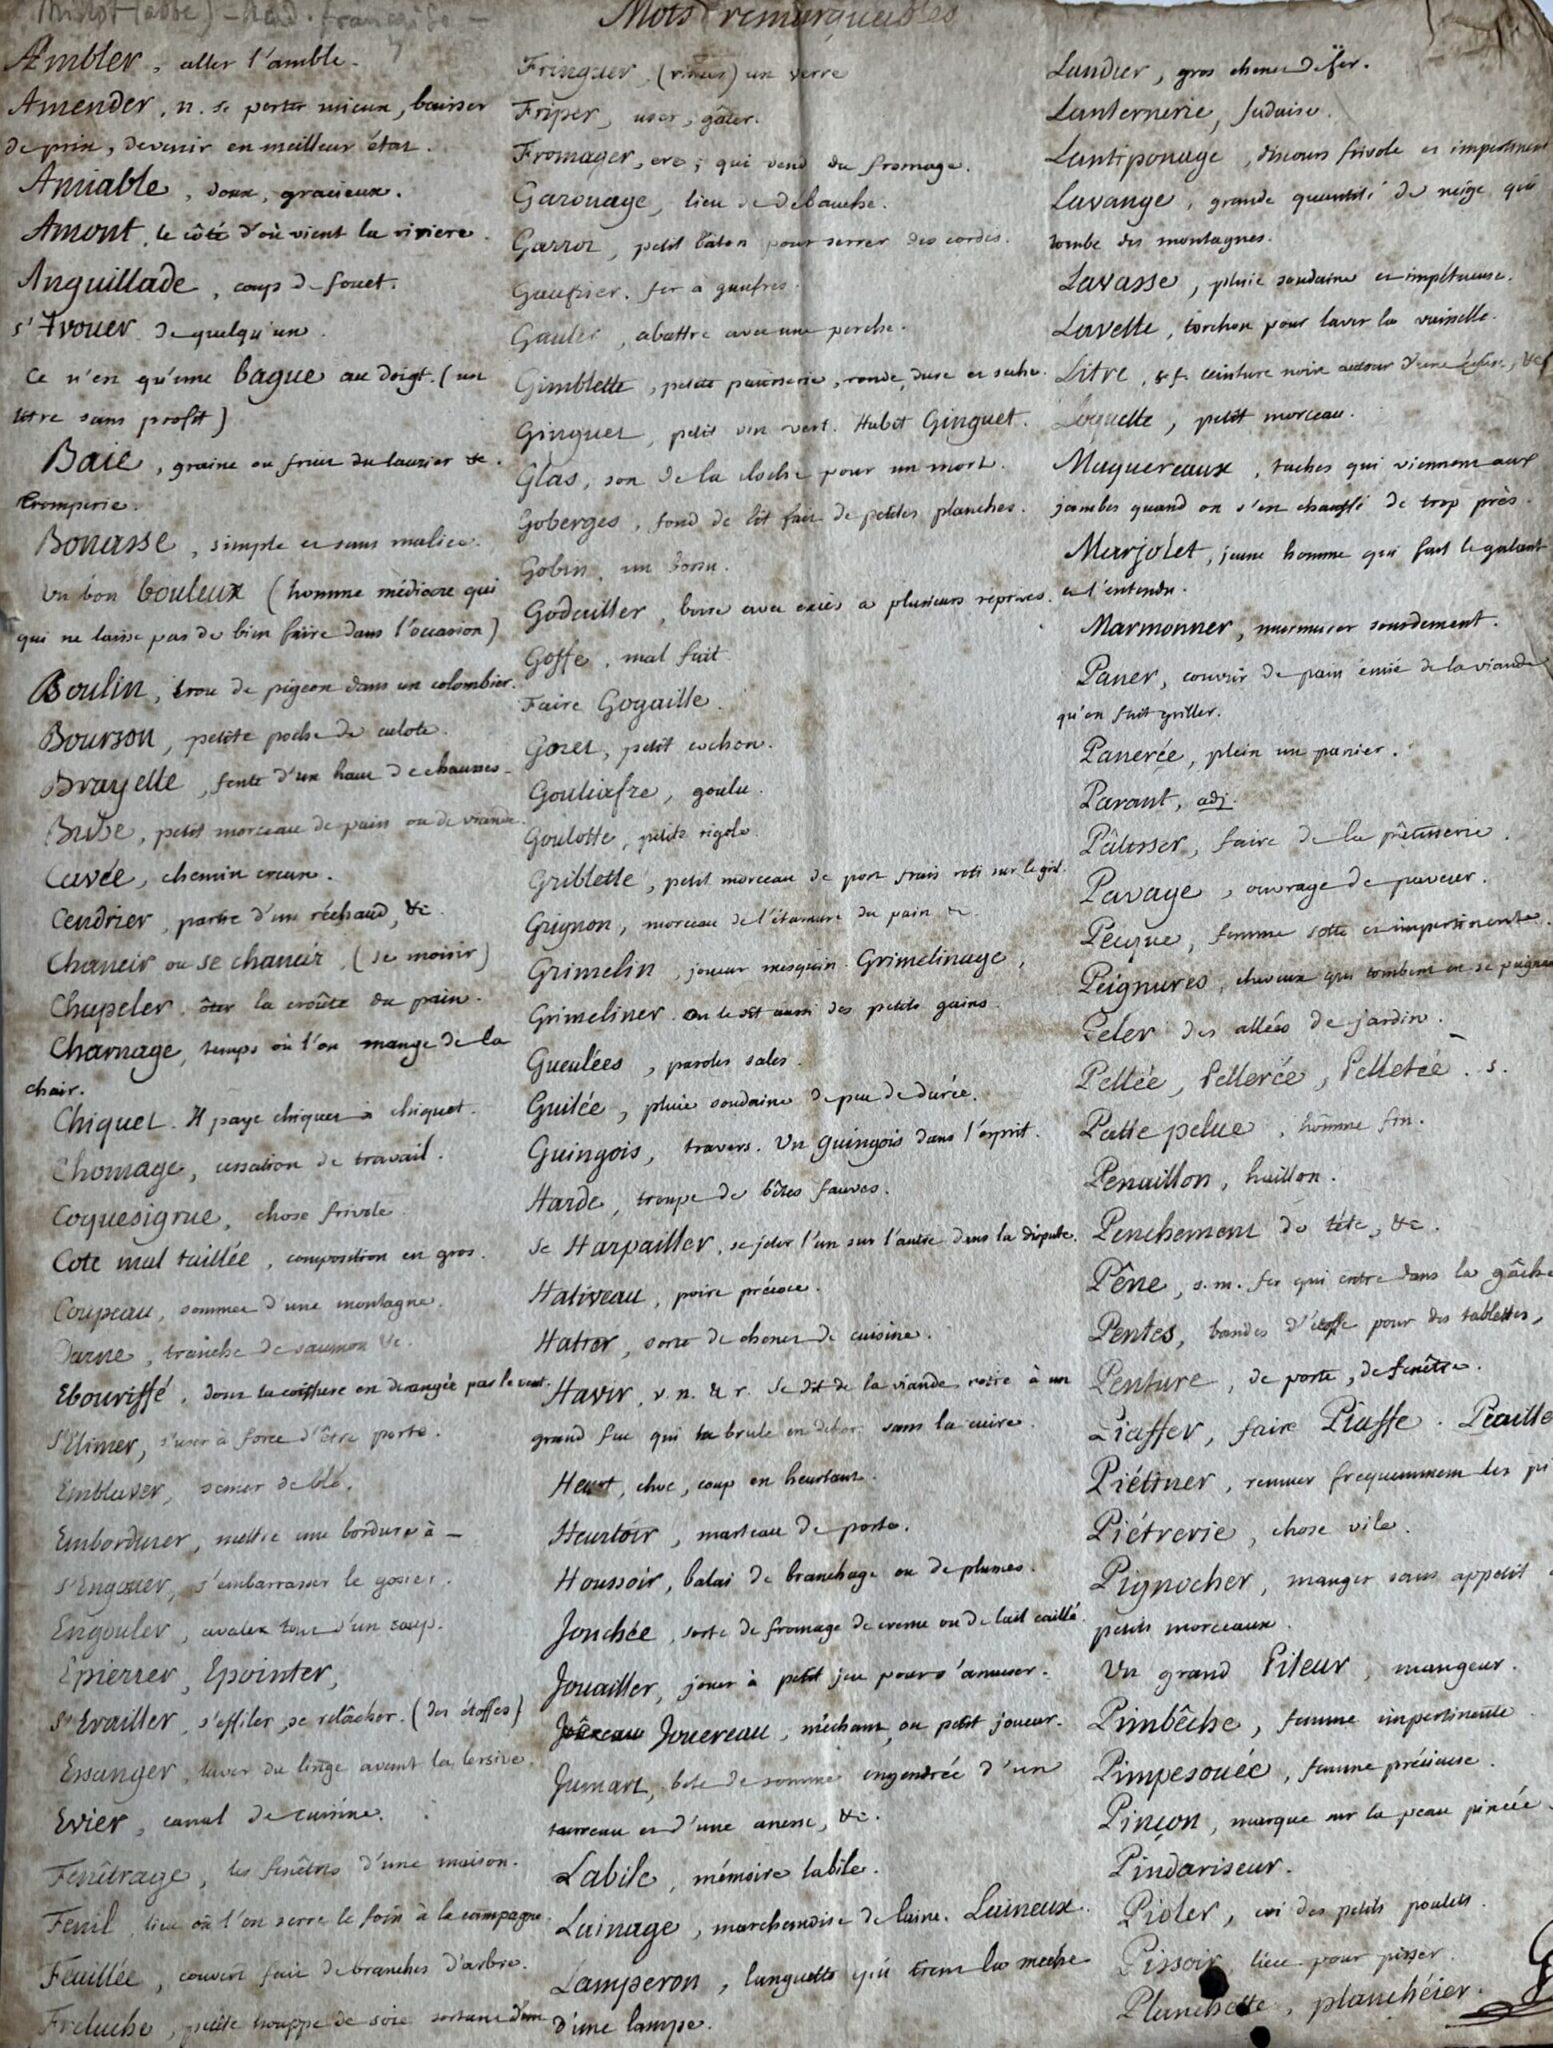 (abbé) - Acad. française -
Mots remarquables
Ambler, aller l'amble.
Amender, n. se porter mieux, baisser
de prix, devenir en meilleur état.
Amiable, doux, gracieux.
Amont, le côté d'où vient la riviere.
Anguillade, coups de fouet.
s'Avouer de quelqu'un.
Ce n'est qu'une bague au doigt. (un
titre sans profit)
Baie, graine ou fruit du laurier &c.
tromperie.
Bonasse, simple et sans malice.
Un bon bouleux (homme médiocre qui
qui ne laisse pas de bien faire dans l'occasion)
Boulin, trou de pigeon dans un colombier.
Bourson, petite poche de culote.
Brayette, fente d'un haut de chausses.
Bribe, petit morceau de pain ou de viande.
Cavée, chemin creux.
Cendrier, partie d'un réchaud, &c.
Chancir ou se chancir. (se moisir)
Chapeler, ôter la croûte du pain.
Charnage, temps où l'on mange de la
chair.
Chiquet. Il paye chiquet à chiquet.
Chomage, cessation de travail.
Coquesigrue, chose frivole.
Cote mal taillée, composition en gros.
Coupeau, sommet d'une montagne.
Darne, tranche de saumon &c.
Ebouriffé, dont la coiffure en derangée par le vent.
s'Elimer, s'user à force d'être porté.
Emblaver, semer de blé.
Embordurer, mettre une bordure à —
s'Engouer, s'embarrasser le gosier.
Engouler, avaler tout d'un coup.
Epierrer, Epointer,
s'Erailler, s'effiler, se relâcher. (des étoffes)
Essanger, laver du linge avant la lessive.
Evier, canal de cuisine.
Fenêtrage, les fenêtres d'une maison.
Fenil, lieu où l'on serre le foin à la campagne.
Feuillée, couvert fait de branches d'arbre.
Freluche, petite houppe de soie sortant d'une
Fringuer, (rincer) un verre
Friper, user, gâter.
Fromager, ere, qui vend du fromage.
Garouage, lieu de débauche.
Garrot, petit bâton pour serrer des cordes.
Gaufrier, fer à gaufres.
Gauler, abattre avec une perche.
Gimblette, petite patisserie, ronde, dure et seche.
Ginguet, petit vin vert. Habit Ginguet.
Glas, son de la cloche pour un mort.
Goberges, fond de lit fait de petites planches.
Gobin, un bossu.
Godailler, boire avec excès à plusieurs reprises.
Goffe, mal fait.
Faire Gogaille.
Goret, petit cochon.
Gouliafre, goulu.
Goulotte, petite rigole.
Griblette, petit morceau de porc frais roti sur le gril.
Grignon, morceau de l'étamure du pain &c.
Grimelin, joueur mesquin. Grimelinage,
Grimeliner. on le dit aussi des petits gains.
Gueulées, paroles sales.
Guilée, pluie soudaine de peu de durée.
Guingois, travers. Un guingois dans l'esprit.
Harde, troupe de bêtes fauves.
Se Harpailler, se jeter l'un sur l'autre dans la dispute.
Hativeau, poire précoce.
Hatier, sorte de chenet de cuisine.
Havir, v. n. & r. Se dit de la viande rotie à un
grand feu qui la brule en dehors sans la cuire.
Heurt, choc, coup en heurtant.
Heurtoir, marteau de porte.
Houssoir, balai de branchage ou de plumes.
Jonchée, sorte de fromage de creme ou de lait caillé.
Jouailler, jouer à petit jeu pour s'amuser.
Jouereau, méchant, ou petit joueur.
Jumart, bete de somme engendrée d'un
taureau et d'une anesse, &c.
Labile, mémoire labile.
Lainage, marchandise de laine. Laineux.
Lamperon, languette qui tient la meche
d'une lampe.
Landier, gros chenet de fer.
Lanternerie, fadaise.
Lantiponage, discours frivole et impertinent
Lavange, grande quantité de neige qui
tombe des montagnes.
Lavasse, pluie soudaine et impétueuse.
Lavette, torchon pour laver la vaisselle.
Litre, s. f. ceinture noire autour d'une Eglise, &c
Loquette, petit morceau.
Maquereaux, taches qui viennent aux
jambes quand on s'est chauffé de trop près.
Marjolet, jeune homme qui fait le galant
et l'entendu.
Marmonner, murmurer sourdement.
Paner, couvrir de pain émié de la viande
qu'on fait griller.
Panerée, plein un panier.
Parant, adj.
Pâtisser, faire de la pâtisserie.
Pavage, ouvrage de paveur.
Pecque, femme sotte et impertinente.
Peignures, cheveux qui tombent en se peignant
Peler des allées de jardin.
Pellée, Pellerée, Pelletée. s.
Patte pelue, homme fin.
Penaillon, haillon.
Penchement de tête, &c.
Pêne, s. m. fer qui entre dans la gâche
Pentes, bandes d'étoffe pour des tablettes,
Penture, de porte, de fenêtre.
Piaffer, faire Piaffe. Piaille
Piétiner, remuer frequemment les pi
Piétrerie, chose vile.
Pignocher, manger sans appetit
petits morceaux.
Un grand Pileur, mangeur.
Pimbêche, femme impertinente.
Pimpesouée, femme précieuse.
Pinçon, marque sur la peau pincée.
Pindariseur.
Pioler, cri des petits poulets.
Pissoir, lieu pour pisser.
Planchette, planchéier.